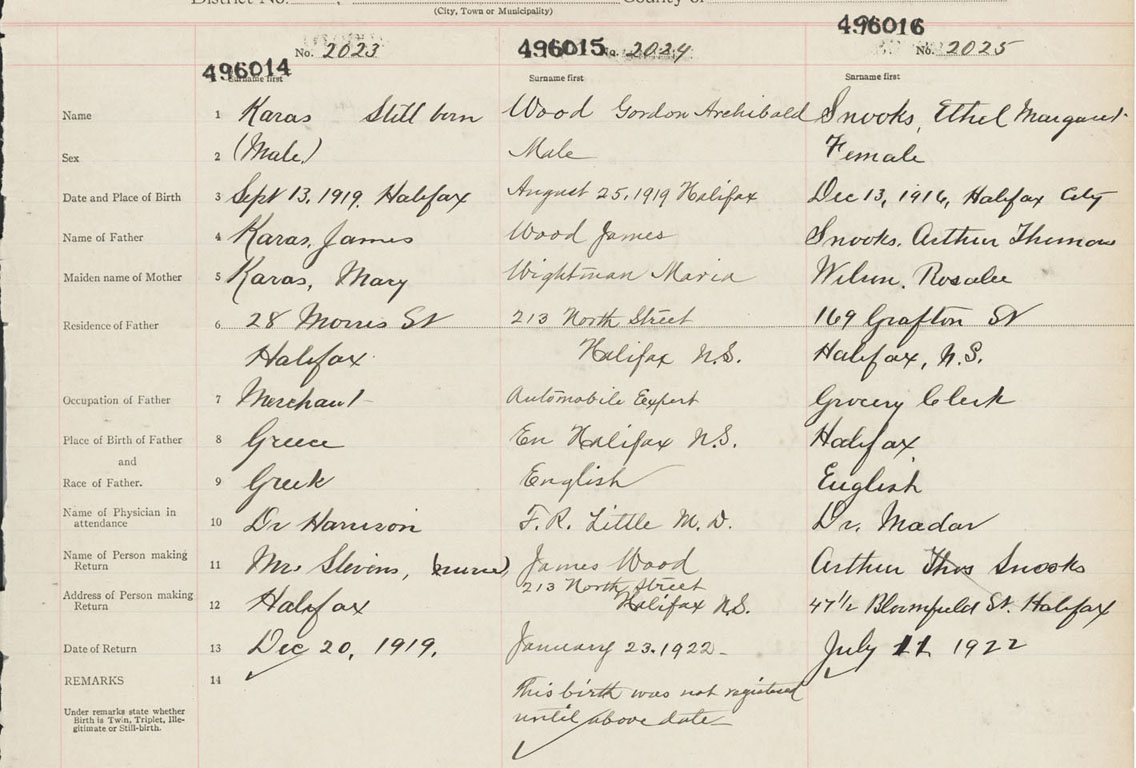 District No. , County of
(City, Town or Municipality)
496014 No. 2023 496015 No. 2024 496016 No. 2025
Surname first Surname first Surname first
Name 1 Karas Still born Wood Gordon Archibald Snooks, Ethel Margaret
Sex 2 (Male) Male Female
Date and Place of Birth 3 Sept 13, 1919. Halifax August 25, 1919 Halifax Dec 13, 1916, Halifax City
Name of Father 4 Karas, James Wood James Snooks, Arthur Thomas
Maiden name of Mother 5 Karas, Mary Wightman Maria Wilson, Rosalee
Residence of Father 6 28 Morris St 213 North Street 169 Grafton St
Halifax Halifax N.S. Halifax, N.S.
Occupation of Father 7 Merchant Automobile Expert Grocery Clerk
Place of Birth of Father 8 Greece En Halifax N.S. Halifax
and
Race of Father. 9 Greek English English
Name of Physician in
attendance 10 Dr Harrison F. R. Little M.D. Dr. Madar
Name of Person making
Return 11 Mrs Stevens, (nurse) James Wood Arthur Thos Snooks
213 North Street
Address of Person making
Return 12 Halifax Halifax N.S. 47 1/2 Bloomfield St. Halifax
Date of Return 13 Dec 20, 1919. January 23. 1922 - July 11 1922
REMARKS 14 This birth was not registered
until above date
Under remarks state whether
Birth is Twin, Triplet, Ille-
gitimate or Still-birth.